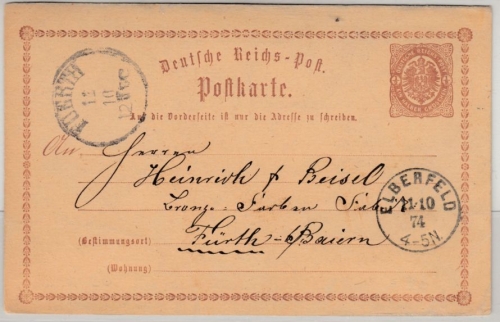 Deutsche Reichs-Post.
Postkarte.
Auf die Vorderseite ist nur die Adresse zu schreiben.
FUERTH
12
10
An Herren
Heinrich & Beisel
Bronze-Farben Fabr
(Bestimmungsort) Fürth-Baiern
(Wohnung)
ELBERFELD
11 10
74
4-5N